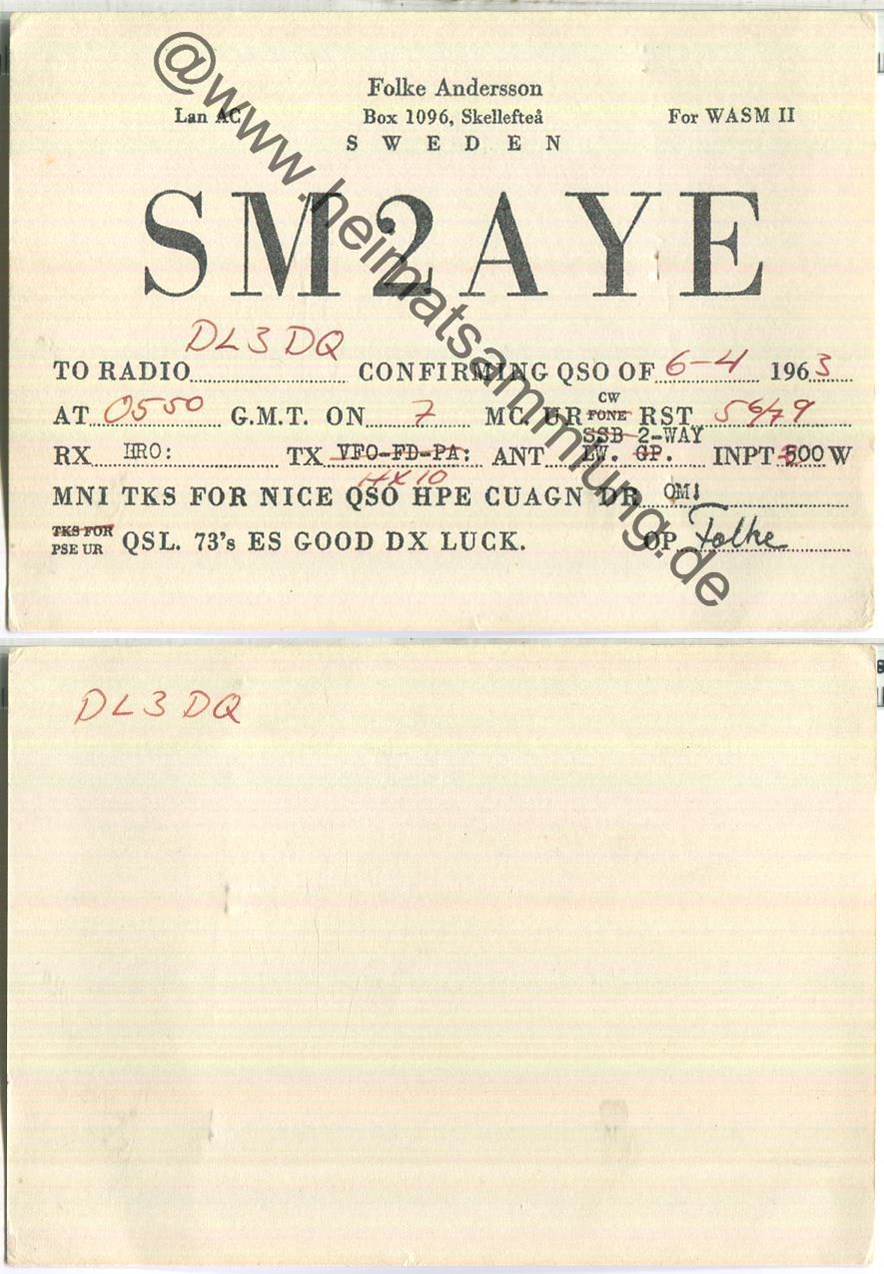 Folke Andersson
Lan AC Box 1096, Skellefteå For WASM II
SWEDEN
SM2AYE
DL3DQ
TO RADIO CONFIRMING QSO OF 6-4 1963
AT 0550 G.M.T. ON 7 MC. UR CW FONE RST
SSB 2-WAY
RX HRO: TX VFO-FD-PA: ANT LW. GP. INPT 500 W
HX10
MNI TKS FOR NICE QSO HPE CUAGN DR OM!
TKS FOR
PSE UR QSL. 73's ES GOOD DX LUCK. OP Folke
@www.heimatsammlung.de
DL3DQ